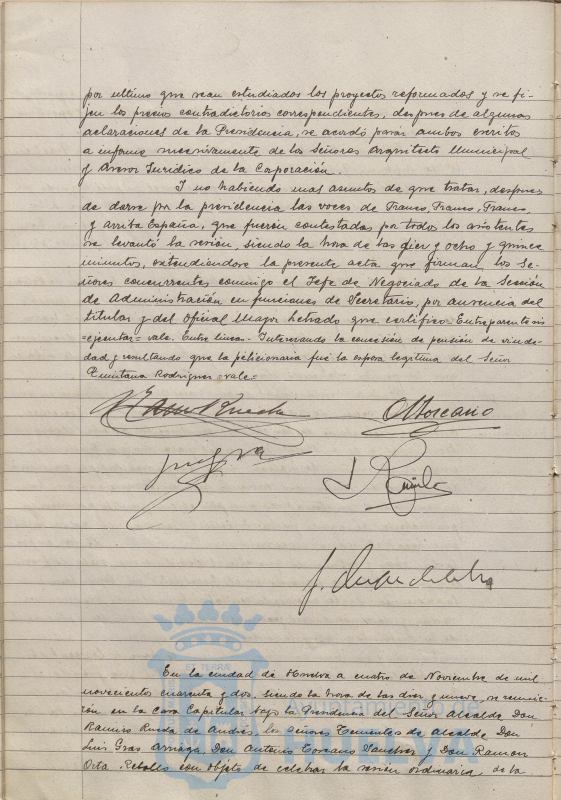 por ultimo que sean estudiados los proyectos reformados y se fi-
jen los precios contradictorios correspondientes, despues de algunas
aclaraciones de la Presidencia, se acordó pasar ambos escritos
a informe sucesivamente de los Señores Arquitecto Municipal
y Asesor Juridico de la Corporación.
Y no habiendo mas asuntos de que tratar, despues
de darse por la presidencia las voces de Franco, Franco, Franco,
y arriba España, que fueron contestadas por todos los asistentes
se levantó la sesión, siendo la hora de las diez y ocho y quince
minutos, extendiendose la presente acta que firman los Se-
ñores concurrentes conmigo el Jefe de Negociado de la Sección
de Administración en funciones de Secretario, por ausencia del
titular y del Oficial Mayor Letrado que certifico. Entre parentesis
=ejecutar= vale. Entre lineas- Interesando la concesión de pensión de viude-
dad y resultando que la peticionaria fué la esposa legitima del Señor
Quintana Rodriguez =vale=
OToscano
En la ciudad de Huelva a cuatro de Noviembre de mil
novecientos cuarenta y dos, siendo la hora de las diez y nueve, se reunie-
rón en la Casa Capitular bajo la Presidencia del Señor Alcalde Don
Ramiro Rueda de Andrés, los Señores Tenientes de Alcalde Don
Luis Gras Arriaga, Don Antonio Toscano Sanchez y Don Ramon
Orta Rebollo con objeto de celebrar la sesión ordinaria, de la
Ayuntamiento de
HUELVA